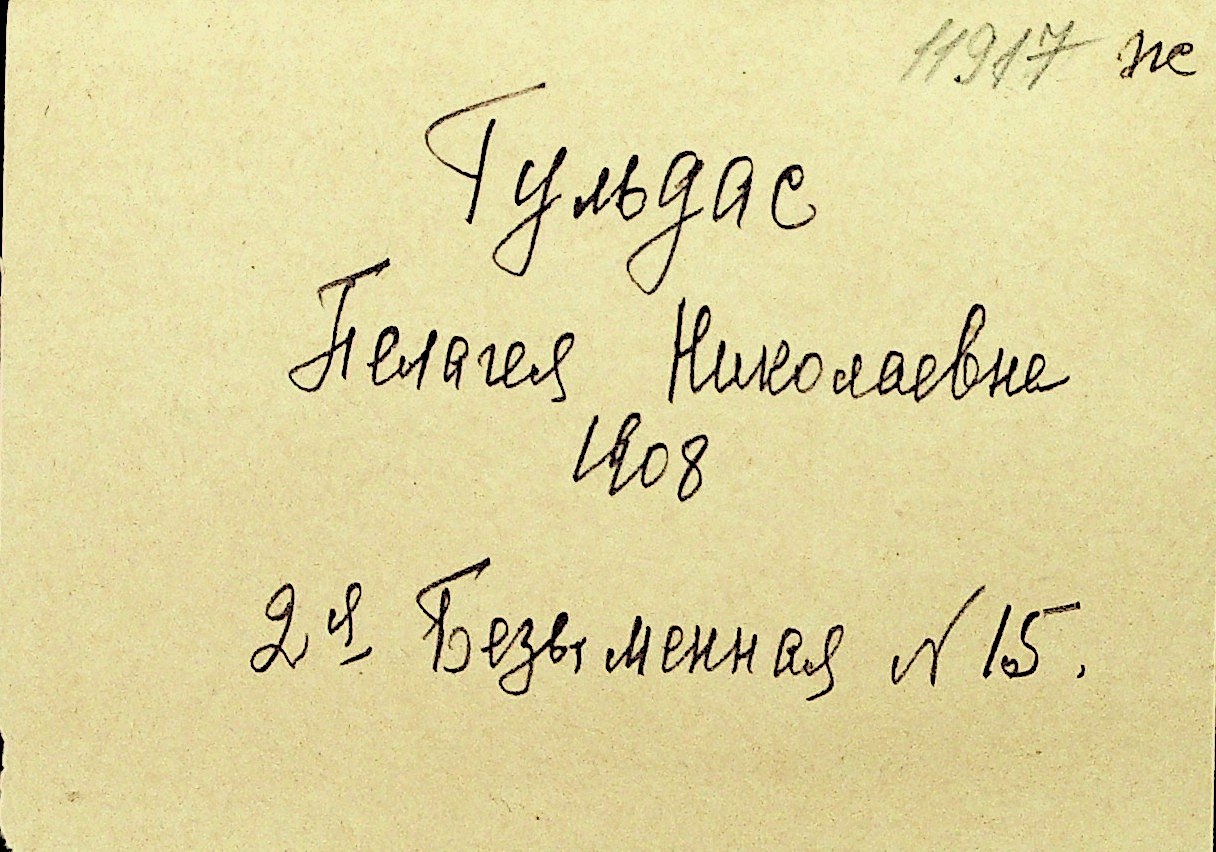 11917 же
Гульдас
Пелагея Николаевна
1908
2я Безыменная N 15.